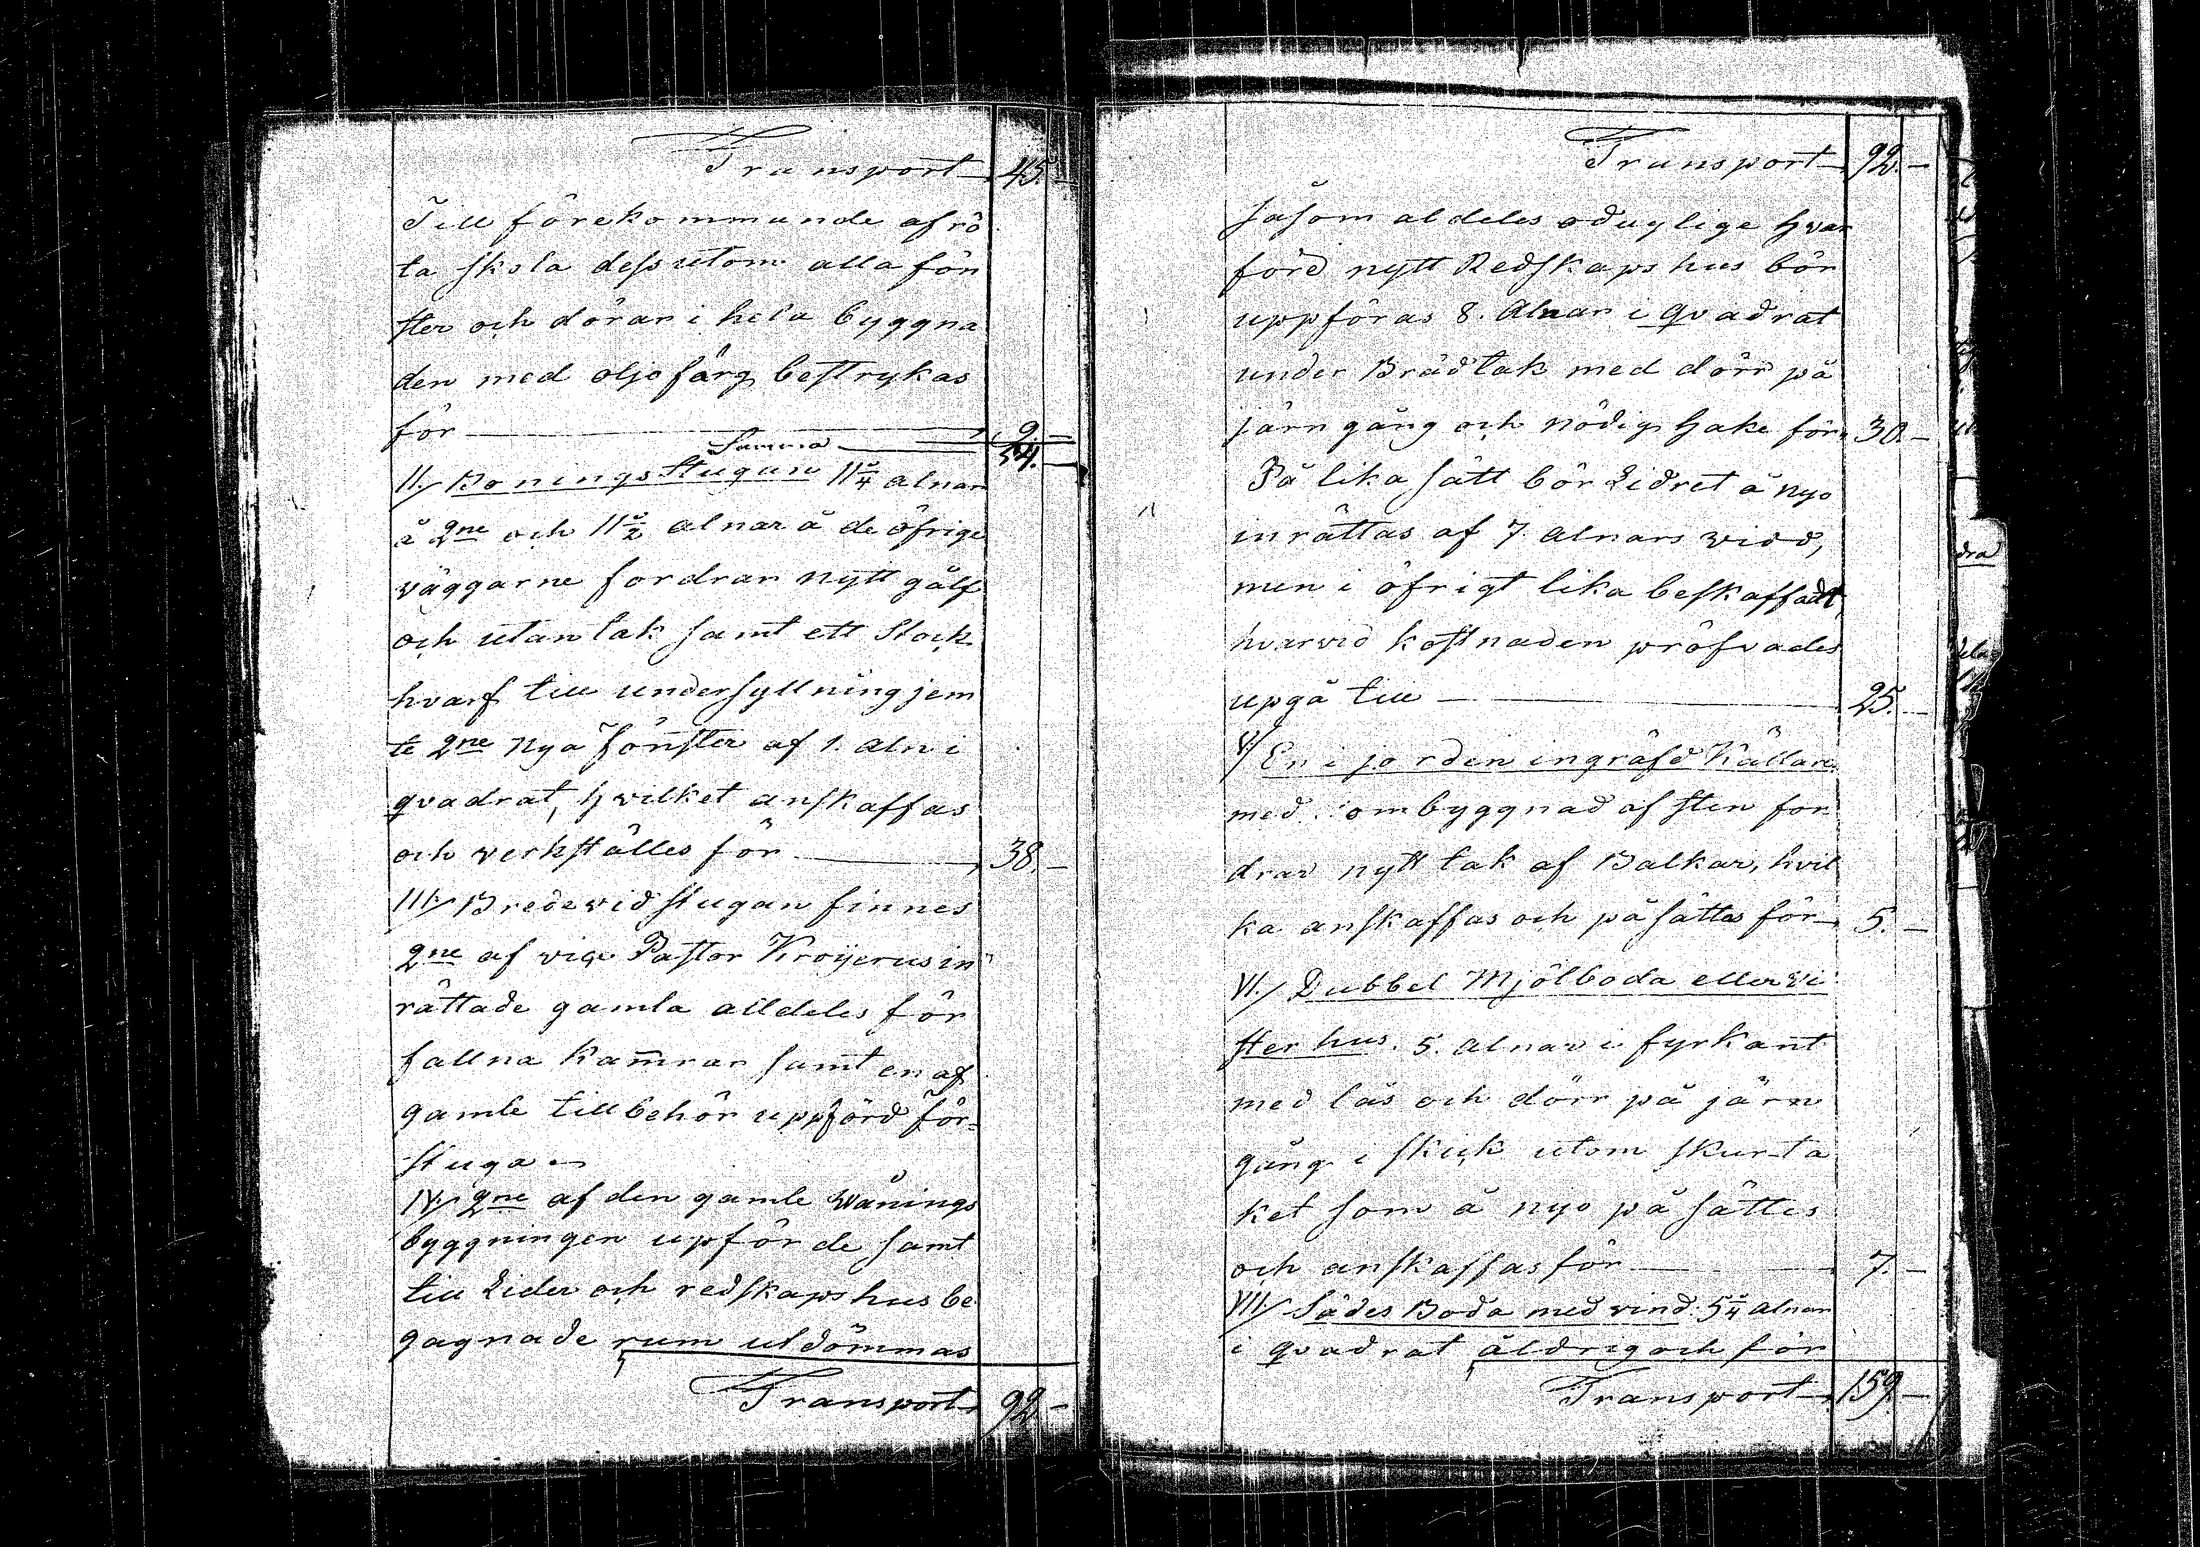 Transport 45.-
Till förekommande af rö
ta skola dessutom alla fön
ster och dörar i hela byggna
den med oljofärg bestrykas
för 9.-
Summa 54.-
II./ Boningsstugan 11 3/4 alnar
å 2ne och 11 1/2 alnar å de öfrige
väggarne fordrar nytt gålf
och utantak samt ett Stock
hvarf till undersyllning jem
te 2ne nya fönster af 1. aln i
qvadrat, hvilket anskaffas
och verkställes för 38.-
III./ Bredevid stugan finnes
2ne af vice Pastor Kroijerus in
rättade gamla alldeles för
fallna kamrar samt en af
gamle tillbehör uppförd för=
stuga
IV./ 2ne af den gamle Wånings
byggningen upförde samt
till Lider och redskapshus be
gagnade rum utdömmas
Transport 92.-
Transport 92.-
såsom aldeles oduglige hvar
före nytt Redskapshus bör
uppföras 8. Alnar i qvadrat
under Brädtak med dörr på
järngång och nödig hake för 30.-
På lika sätt bör Lidret å nyo
inrättas af 7. Alnars vidd,
men i öfrigt lika beskaffadt,
hvarvid kostnaden pröfvades
upgå till 25.-
V./ En i jorden ingräfd Källare
med ombyggnad af sten for
drar nytt tak af Balkar, hvil
ka anskaffas och påsättes för 5.-
VI./ Dubbel Mjölboda eller Vi
ster hus. 5. Alnar i fyrkant
med lås och dörr på järn
gång i skick utom skurta
ket som å nyo påsättes
och anskaffas för 7.-
VII./ Sädes Boda med vind 5 3/4 Alnar
i qvadrat åldrig och för
Transport 159.-